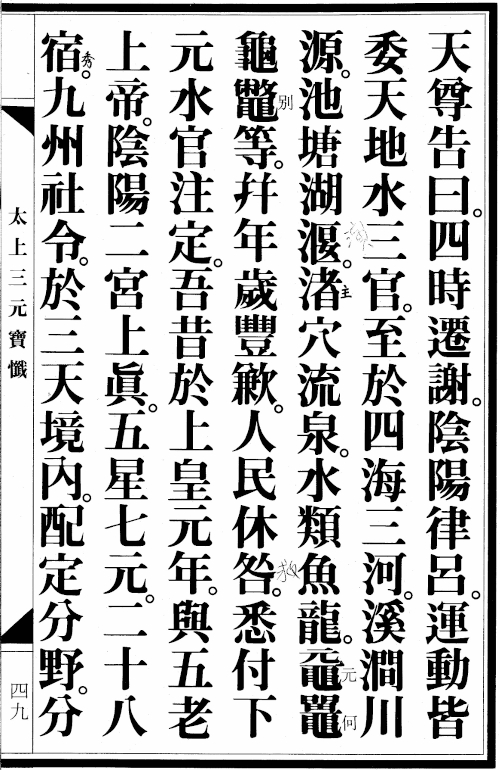 天尊告曰。四時遷謝。陰陽律呂。運動皆
委天地水三官。至於四海三河。溪澗川
源。池塘湖湠。渚穴流泉。水類魚龍。黿鼉
龜鼈等。幷年歲豐歉。人民休咎。悉付下
元水官注定。吾昔於上皇元年。與五老
上帝。陰陽二宮上眞。五星七元。二十八
宿。九州社令。於三天境內。配定分野。分
主
元
何
別
秀
太上三元寶懺
四九